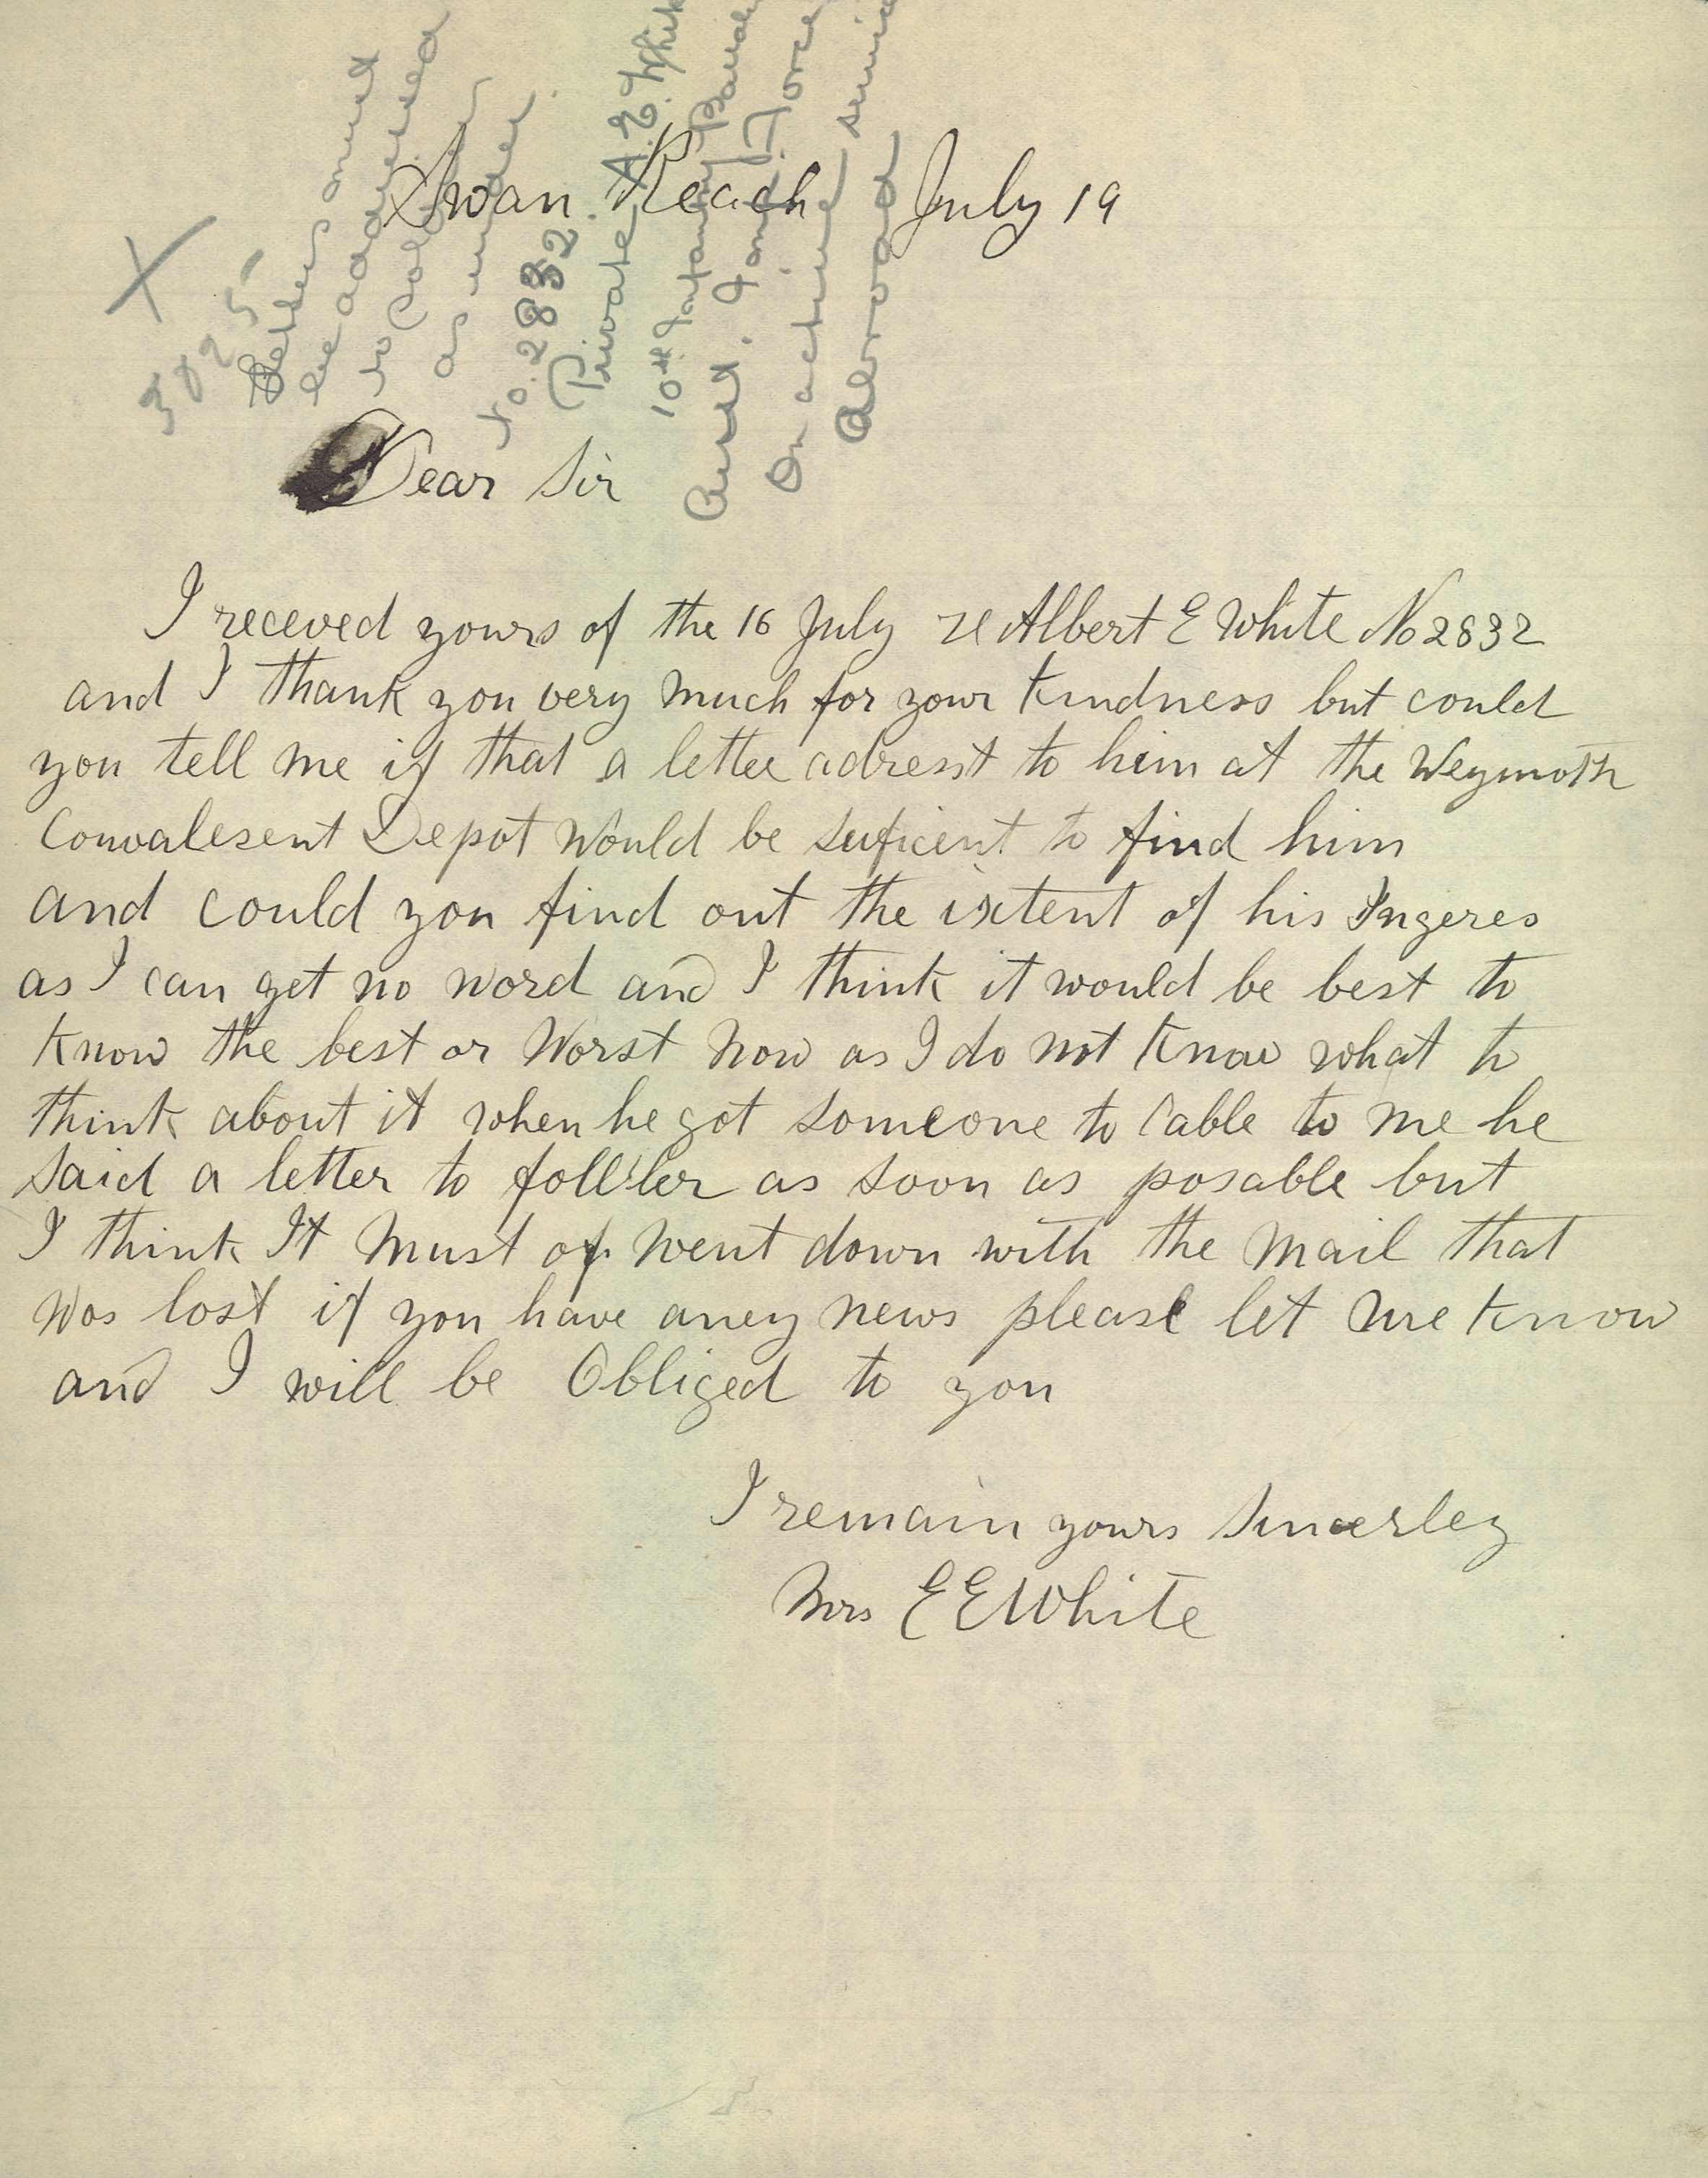 X
Letters must
be addressed
to Soldier
as under
No. 2832
Private A.E. White
10th Infantry Battalion
Aust. Imp. Force
On active service
Abroad
Swan Reach July 19
Dear Sir
I receved yours of the 16 July re Albert E White No 2832
and I thank you very much for your kindness but could
you tell me if that a letter adresst to him at the Weymoth
Convalesent Depot would be suficent to find him
and could you find out the ixtent of his Ingeres
as I can get no word and I think it would be best to
know the best or worst now as I do not know what to
think about it when he got someone to cable to me he
said a letter to as soon as posable but
I think It must of went down with the mail that
was lost if you have aney news please let me know
and I will be Obliged to you
I remain yours Sincerley
Mrs E E White